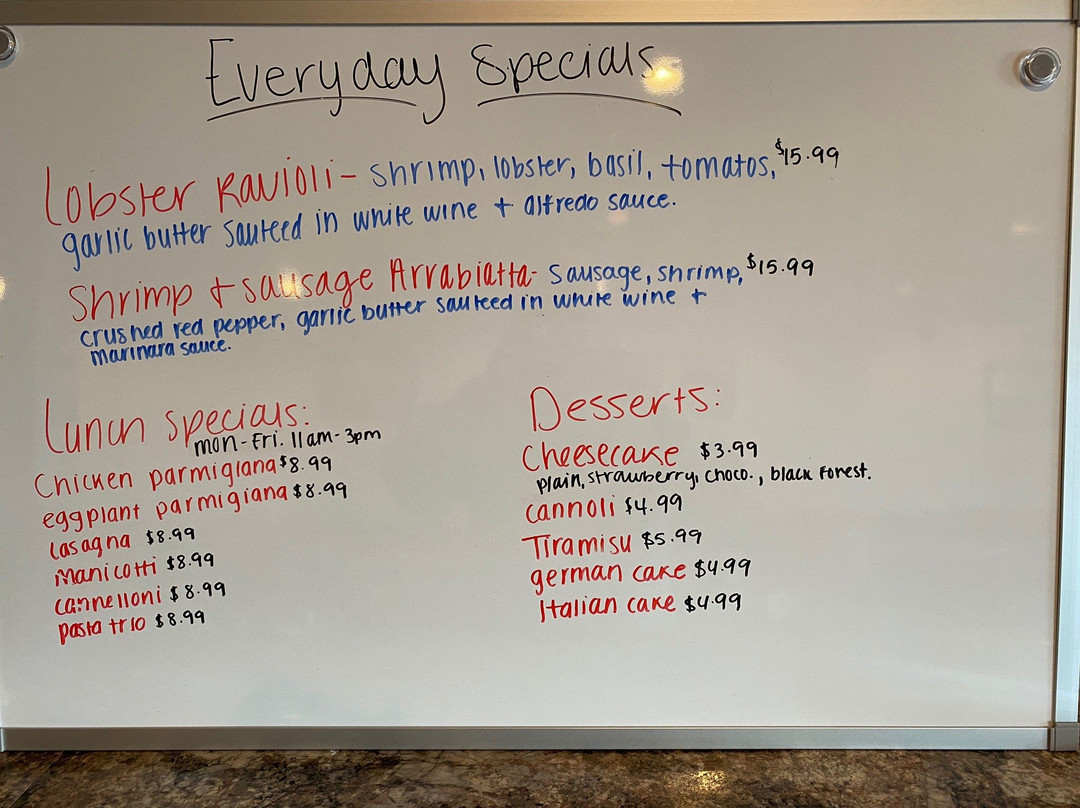 Everyday Specials
Lobster Ravioli - shrimp, lobster, basil, tomatos, $15.99
garlic butter sauteed in white wine + alfredo sauce.
Shrimp + sausage Arrabiatta - sausage, shrimp, $15.99
crushed red pepper, garlic butter sauteed in white wine +
marinara sauce.
Lunch specials:
mon-Fri. 11am-3pm
Chicken parmigiana $8.99
eggplant parmigiana $8.99
lasagna $8.99
manicotti $8.99
cannelloni $8.99
pasta trio $8.99
Desserts:
Cheesecake $3.99
plain, strawberry, choco., black forest.
cannoli $4.99
Tiramisu $5.99
german cake $4.99
Italian cake $4.99